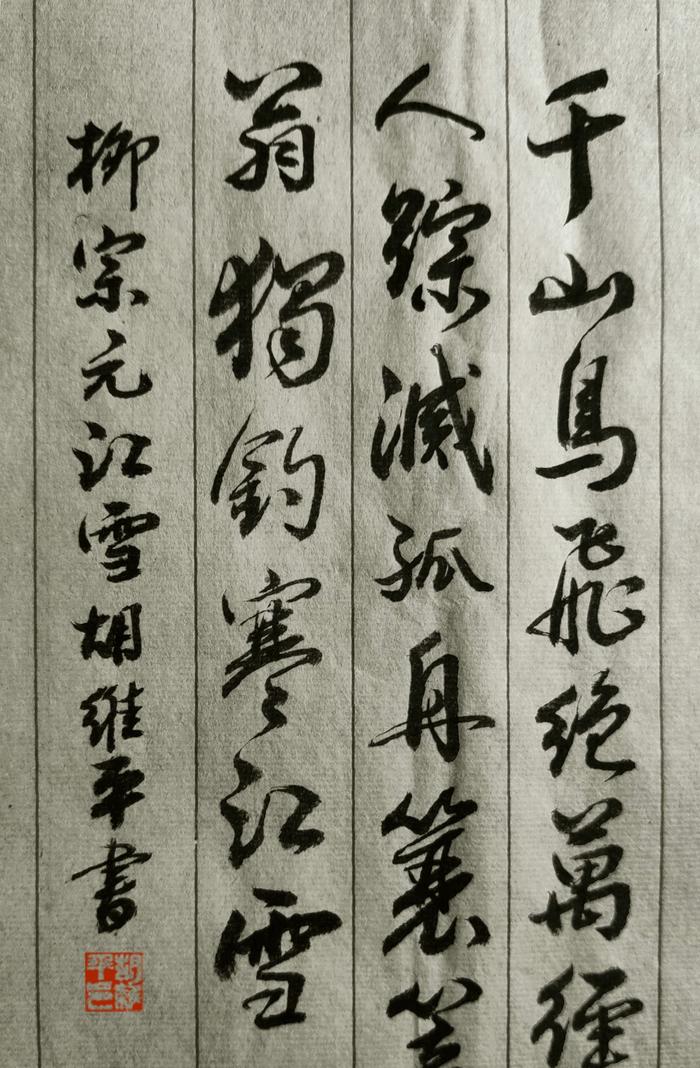 千山鳥飛絕萬徑
人踪滅孤舟蓑笠
翁獨釣寒江雪
柳宗元江雪胡維平書